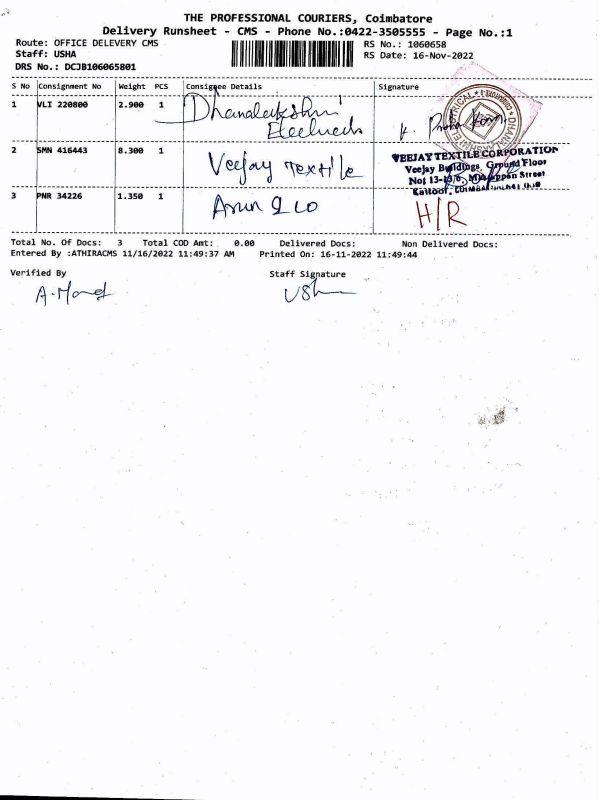 THE PROFESSIONAL COURIERS, Coimbatore
Delivery Runsheet - CMS - Phone No.:0422-3505555 - Page No.:1
Route: OFFICE DELEVERY CMS
RS No.: 1060658
Staff: USHA
RS Date: 16-Nov-2022
DRS No.: DCJB106065801
S No Consignment No Weight PCS Consignee Details Signature
1 VLI 220800 2.900 1 Dhanalakshmi
2 SMN 416443 8.300 1 Veejay Textile
VEEJAY TEXTILE CORPORATION
Veejay Buildings, Ground Floor
Street
3 PNR 34226 1.350 1 Arun & co H/R
Total No. Of Docs: 3 Total COD Amt: 0.00 Delivered Docs: Non Delivered Docs:
Entered By :ATHIRACMS 11/16/2022 11:49:37 AM Printed On: 16-11-2022 11:49:44
Verified By Staff Signature